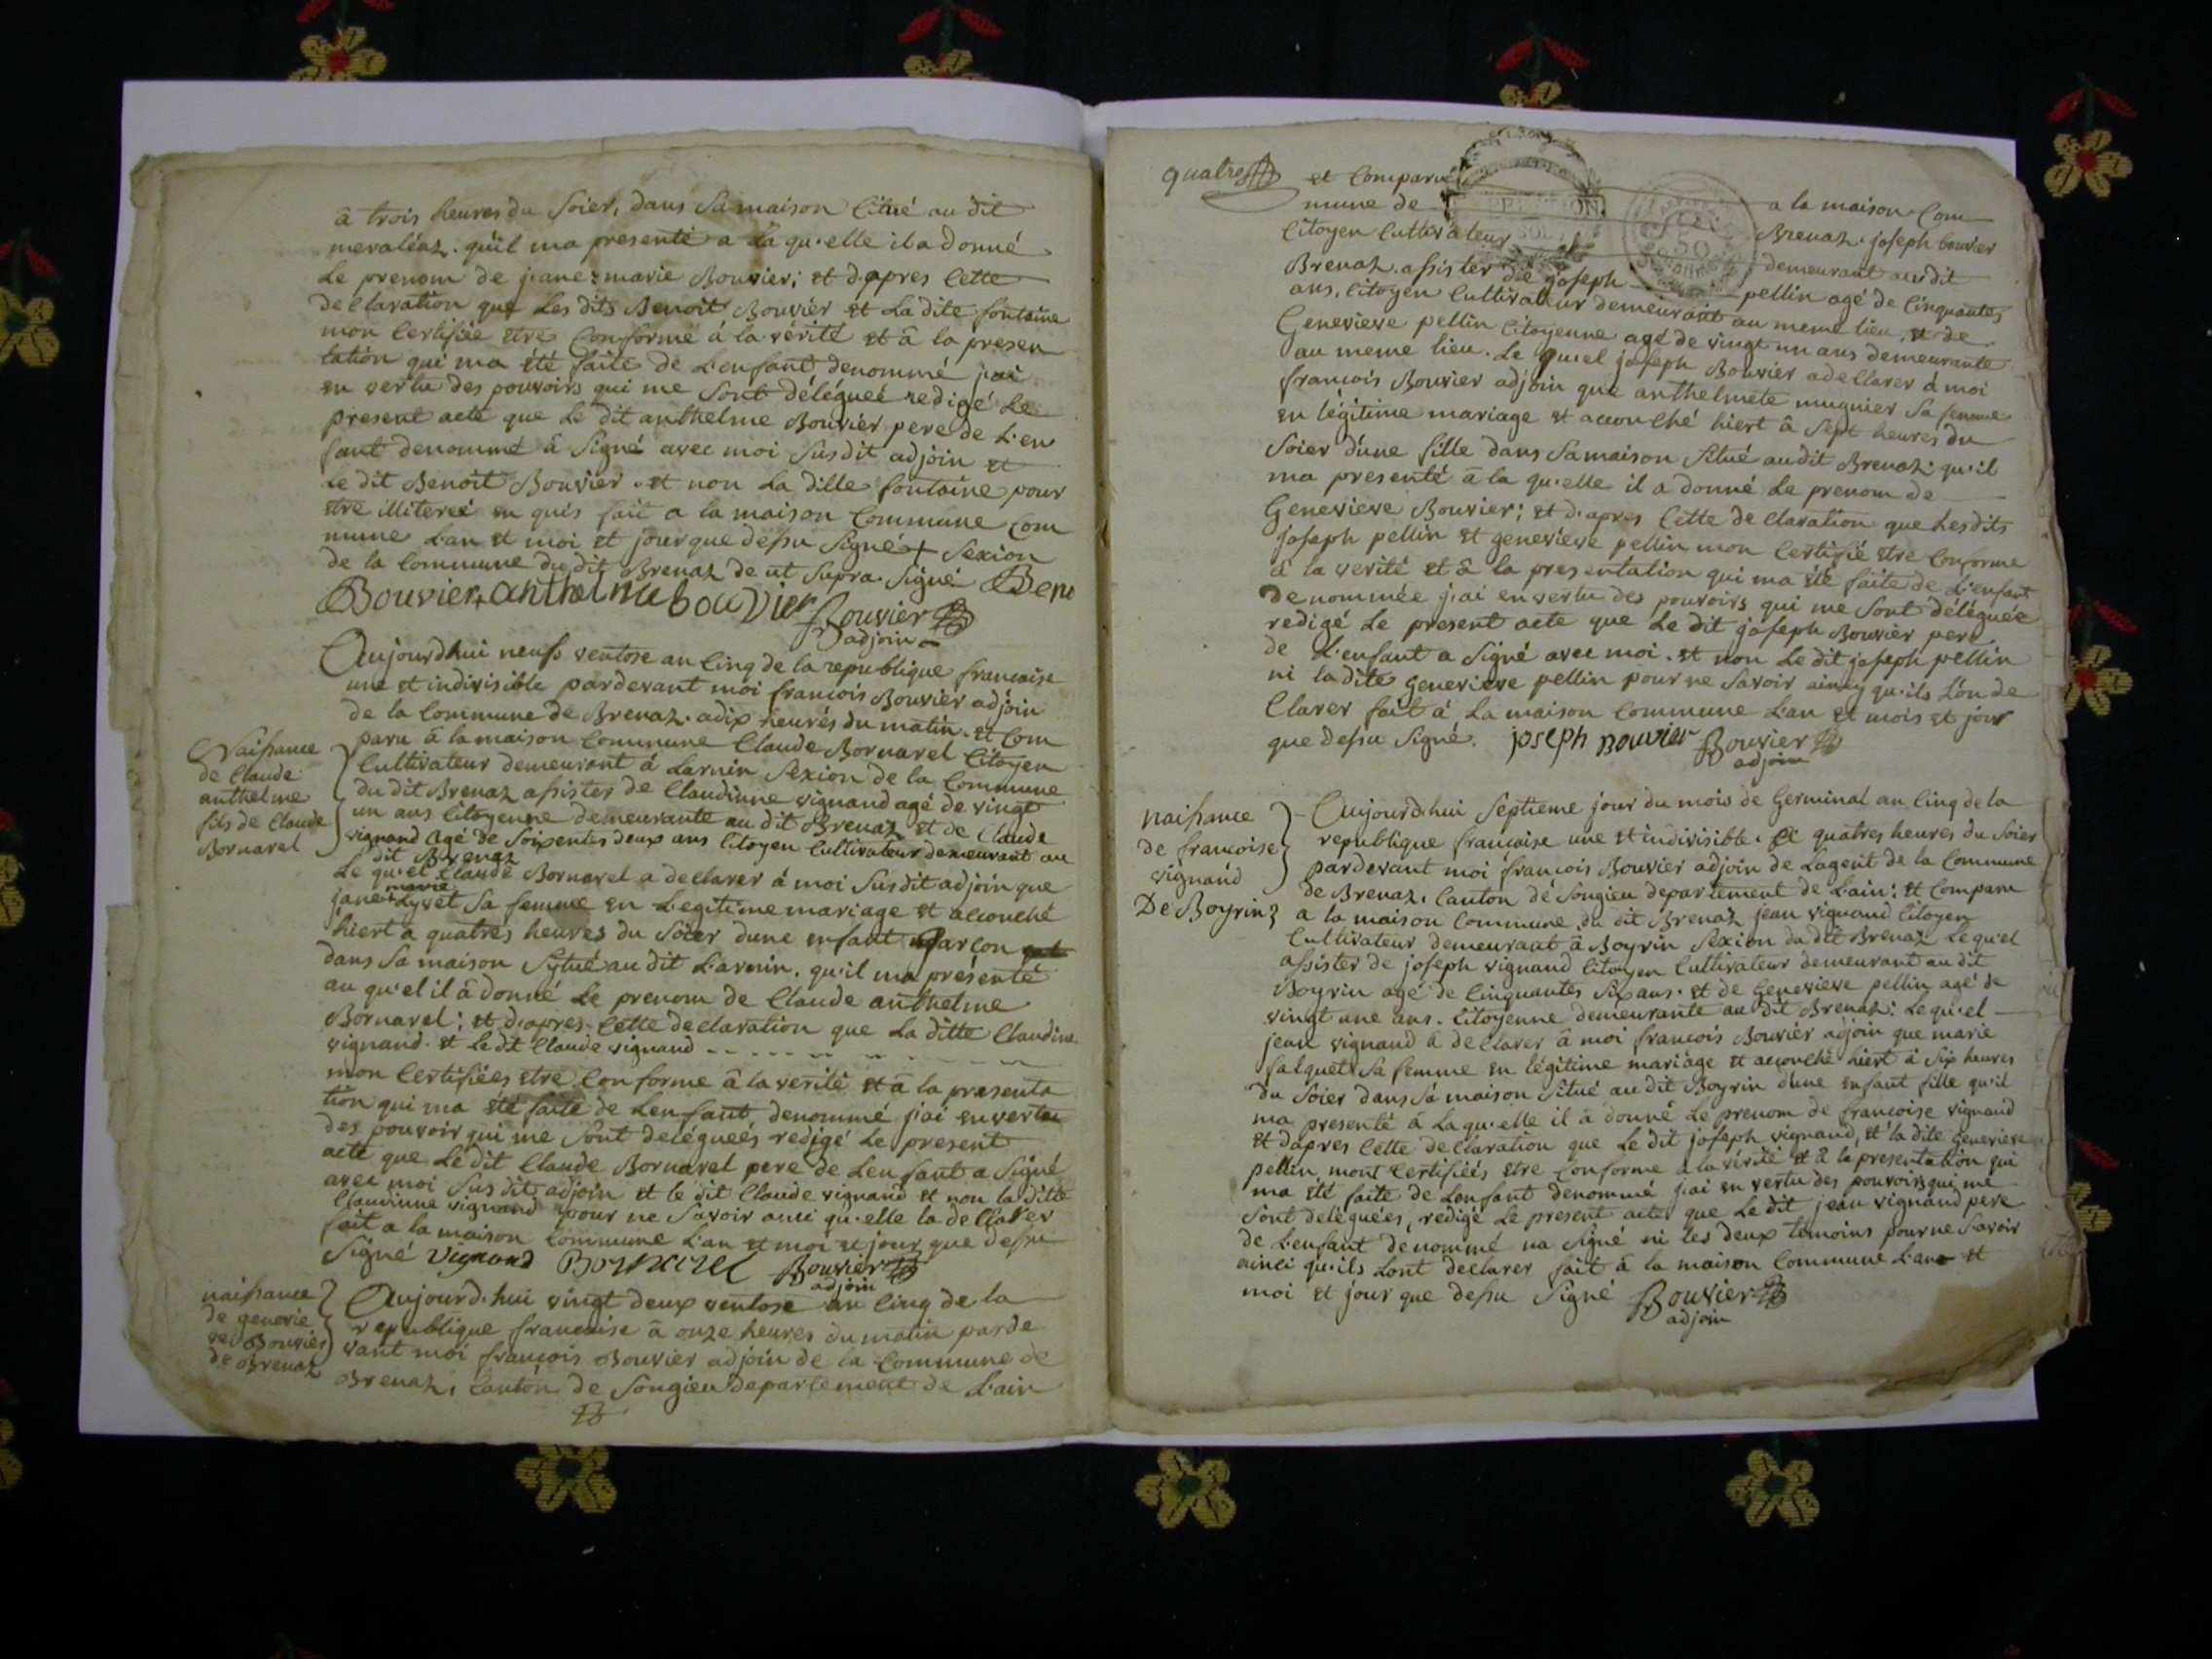 â trois heures du soier, dans sa maison Citué au dit
mevaléaz. qu'il ma presenté a la qu'elle il a donné
Le prenom de jane=marie Bouvier; et d'apres Cette
declaration que Les dits Benoit Bouvier et La dite fontaine
mon Certifiée etre Conforme á la vérité et â la presen
tation qui ma été faite de L'enfant denommé j'ai
en vertu des pouvoirs qui me sont déléguéé redigé Le
present acte que Le dit anthelme Bouvier pere de L'en
fant denommé â signé avec moi susdit adjoin et
Le dit Benoit Bouvier. et non La ditte fontaine pour
etre illitereé en quis fait a la maison Commune Com
mune L'an et moi et jour que dessu signé + sexion
de la Commune du dit Brenaz de ut supra. signé Bene
Bouvier, anthelme bouvier Bouvier
adjoin
Aujourdhui neufs ventose an Cinq de la republique francaise
une et indivisible pardevant moi francois Bouvier adjoin
de la Commune de Brenaz. a dix heurés du matin. et Com
paru â la maison Commune Claude Bornarel Citoyen
Cultivateur demeurant á Larnin sexion de la Commune
du dit Brenaz assister de Claudinne vignand agé de vingt
un ans Citoyenne demeurante au dit Brenaz et de Claude
vignand agé de soixentes deux ans Citoyen Cultivateur demeurant au
dit Brenaz
Naissance
de Claude
anthelme
fils de Claude
Bornarel
Le qu'el Claude Bornarel a declarer á moi susdit adjoin que
marie
jane Lyvet sa femme en Legitime mariage et accouché
hiert a quatres heures du soier dune enfant garcon
dans sa maison sytué au dit L'arnin. qu'il ma présenté
au qu'el il â donné Le prenom de Claude anthelme
Bornarel; et d'apres Cette declaration que La ditte Claudine
vignand. et le dt Claude vignand
mon Certifiées etre Conforme â la verité et â la presenta
tion qui ma été faite de Lenfant denommé j'ai en vertu
des pouvoir qui me sont deléguéés redigé Le present
acte que Le dit Claude Bornarel pere de Lenfant a signé
avec moi susdit adjoin et le dit Claude vignand et non la ditte
Claudinne vignand pour ne savoir ainci qu'elle la deClarer
fait a la maison Commune L'an et moi et jour que dessu
signé vignand Bornarel Bouvier
adjoin
naissance
de genevie
ve Bouvier
de Brenaz
Aujourd'hui vingt deux ventose an Cinq de la
republique francaise â onze heures du matin parde
vant moi françois Bouvier adjoin de la Commune de
Brenaz, Canton de Songieu Departement de L'ain
quatres
et Comparu a la maison Com
mune de Brenaz. joseph bouvier
Citoyen Cultivateur demeurant au dit
Brenaz. assister de joseph pellin agé de Cinquantes
ans, Citoyen Cultivateur demeurant au meme lieu, et de
Genevieve pellin Citoyenne agé de vingt un ans demeurante
au meme lieu. Le qu'el joseph Bouvier a deClarer á moi
francois Bouvier adjoin que anthelmete mugnier sa femme
en légitime mariage et accouché hiert â sept heures du
soier d'une fille dans sa maison situé au dit Brenaz. qu'il
ma presenté â la qu'elle il a donné Le prenom de
Genevieve Bouvier; et d'apres Cette declaration que Lesdits
joseph pellin et genevieve pellin mon Certifié etre Conforme
â la verité et â la presentation qui ma été faite de L'enfant
denommée j'ai en vertu des pouvoirs qui me sont déléguée
redigé Le present acte que Le dit joseph Bouvier pere
de L'enfant a signé avec moi. et non Le dit joseph pellin
ni la dite Genevieve pellin pour ne savoir aincy qu'ils L'on de
Clarer fait á La maison Commune L'an et mois et jour
que dessu signé. joseph Bouvier Bouvier
adjoin
naissance
de francoise
vignand
De Boyrin
Aujourd'hui septieme jour du mois de Germinal an Cinq de la
republique francaise une et indivisible. a quatres heures du soier
pardevant moi francois Bouvier adjoin de L'agent de la Commune
de Brenaz, Canton de Songieu departement de L'ain; et Comparu
a la maison Commune du dit Brenaz jean vignand Citoyen
Cultivateur demeurant â Boyrin sexion du dit Brenaz Le qu'el
assister de joseph vignand Citoyen Cultivateur demeurant au dit
Boyrin agé de Cinquantes six ans. et de Genevieve pellin agé de
vingt une ans. Citoyenne demeurante au dit Brenaz: Le qu'el
jean vignand â declarer â moi francois Bouvier adjoin que marie
falquet sa femme en légitime mariage et accouché hiert á six heures
du soier dans sa maison situé au dit Boyrin d'une enfant fille qu'il
ma presenté â La qu'elle il â donné Le prenom de francoise vignand
et d'apres Cette declaration que Le dit joseph vignand, et la dite Genevieve
pellin mont Certifiéés etre Conforme a la vérité et â la presentation qui
ma été faite de Lenfant denommé j'ai en vertu des pouvoirs qui me
sont deléguées, redigé Le present acte que Le dit jean vignand pere
de L'enfant denommé na signé ni les deux temoins pour ne savoir
ainci qu'ils Lont declarer fait â la maison Commune L'an et
moi et jour que dessu signé Bouvier
adjoin